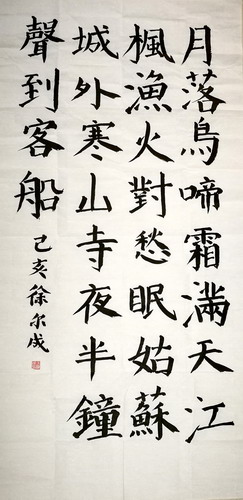 月落鳥啼霜滿天江
楓漁火對愁眠姑蘇
城外寒山寺夜半鐘
聲到客船
己亥徐尔成